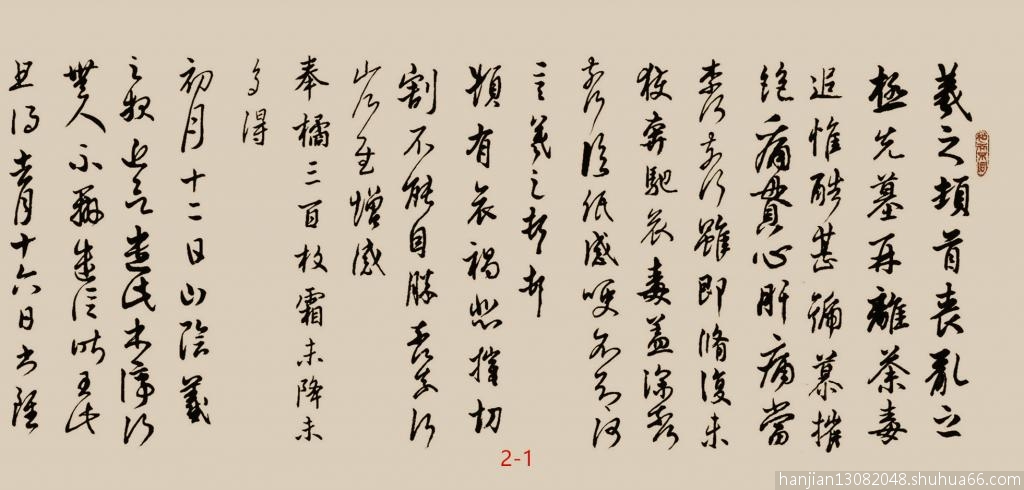 羲之頓首喪亂之
極先墓再離荼毒
追惟酷甚號慕摧
絕痛貫心肝痛當
柰何柰何雖即脩復未
獲奔馳哀毒益深柰
柰何臨紙感哽不知何
言羲之頓首頓首
頻有哀禍悲摧切
割不能自勝奈何奈何
省慰增感
奉橘三百枚霜未降未
可多得
初月十二日山陰羲
之報近欲遣此書停行
無人不辦遣信昨至此
且得去月十六日書雖
2-1
hanjian13082048.shuhua66.com